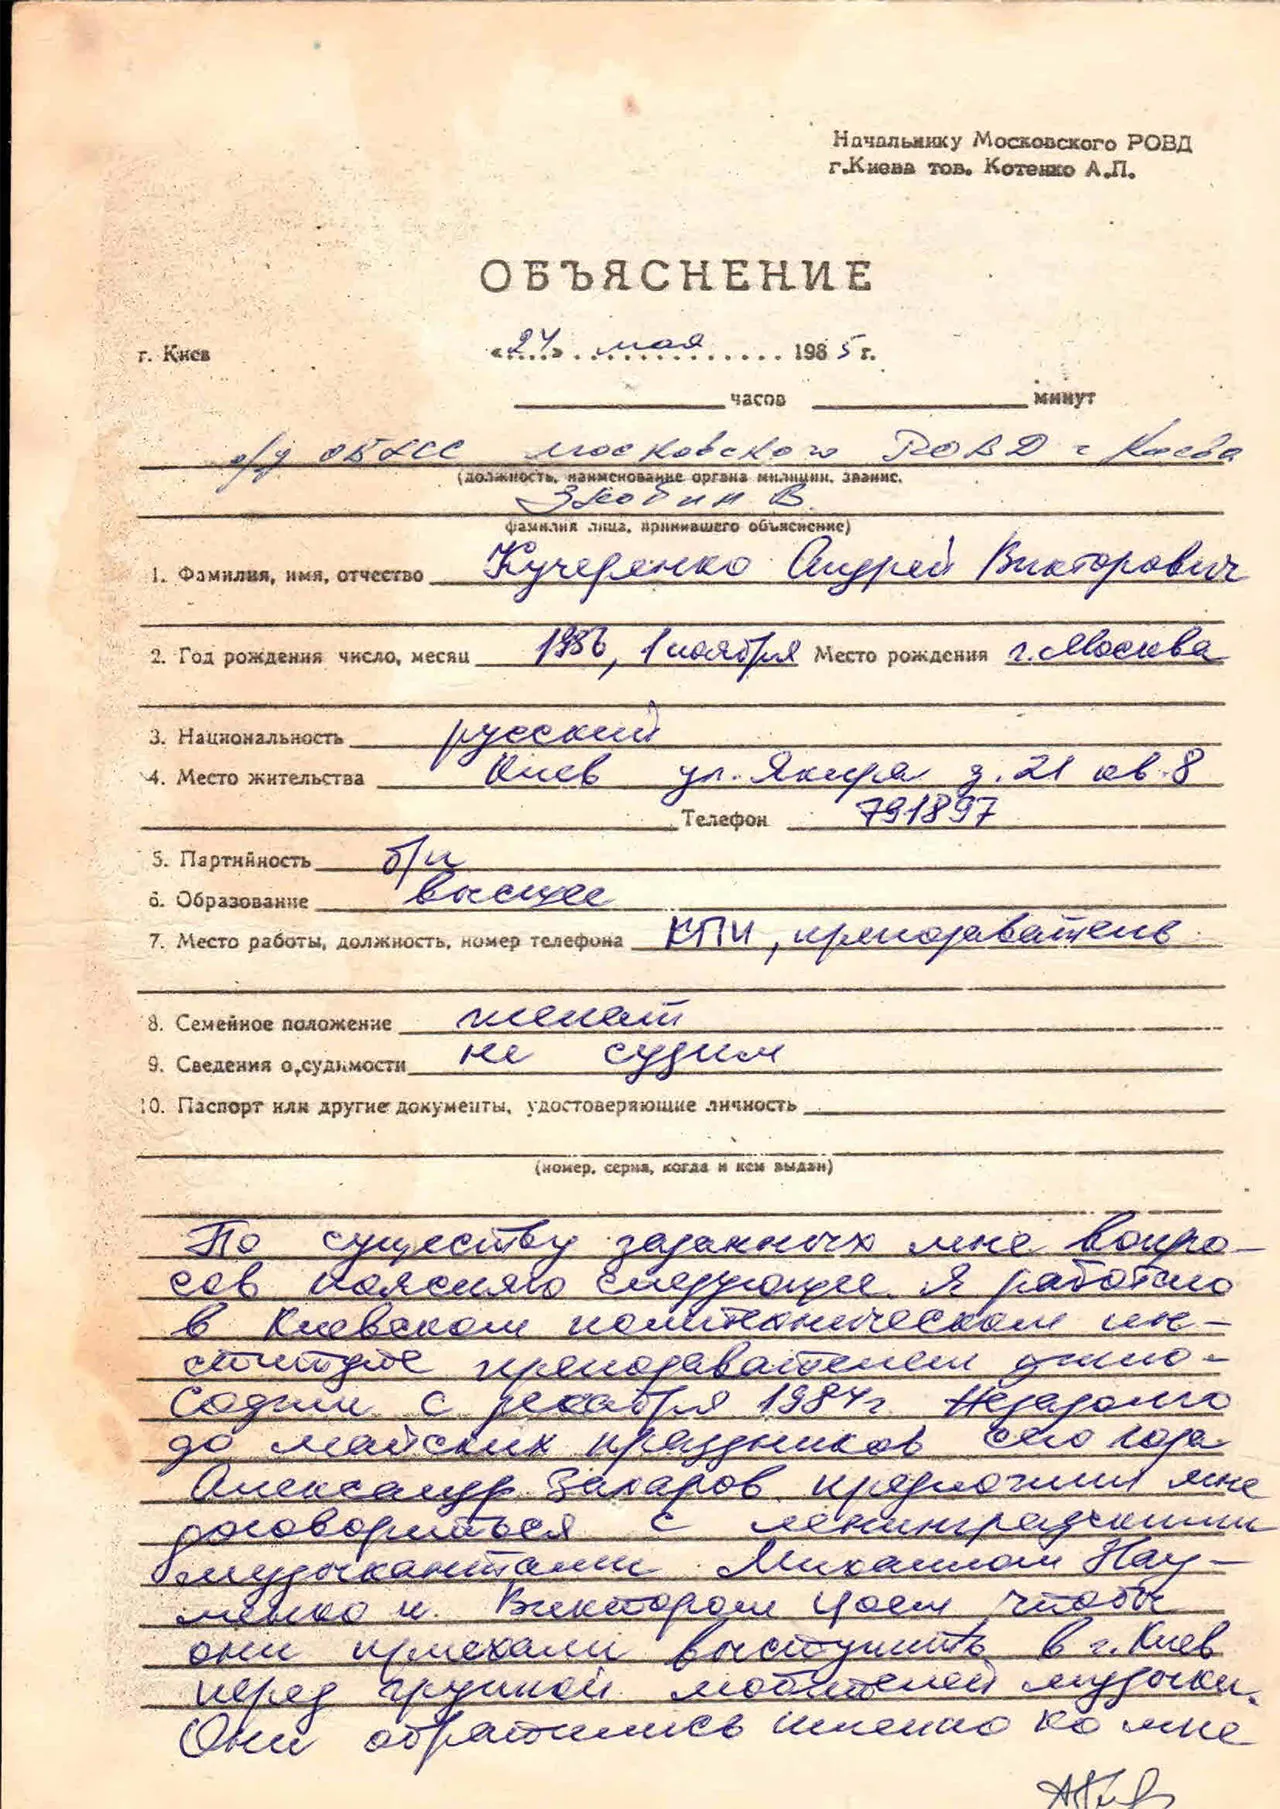 Начальнику Московского РОВД
г.Киева тов. Котенко А.П.
ОБЪЯСНЕНИЕ
г. Киев «24» мая 1985 г.
часов минут
о/у ОБХСС Московского РОВД г Киева
(должность, наименование органа милиции, звание,
Зюбин В.
фамилия лица, принявшего объяснение)
1. Фамилия, имя, отчество Кучеренко Андрей Викторович
2. Год рождения число, месяц 1956, 1 ноября Место рождения г. Москва
3. Национальность русский
4. Место жительства Киев ул. Якира д. 21 кв. 8
Телефон 791897
5. Партийность б/п
6. Образование высшее
7. Место работы, должность, номер телефона КПИ, преподаватель
8. Семейное положение женат
9. Сведения о судимости не судим
10. Паспорт или другие документы, удостоверяющие личность
(номер, серия, когда и кем выдан)
По существу заданных мне вопро-
сов поясняю следующее. Я работаю
в Киевском политехническом ин-
ституте преподавателем фило-
софии с декабря 1984 г. Незадолго
до майских праздников сего года
Александр Захаров предложил мне
договориться с ленинградскими
музыкантами Михаилом Нау-
менко и Виктором Цоем, чтобы
они приехали выступить в г. Киев
перед группой любителей музыки.
Они обратились именно ко мне